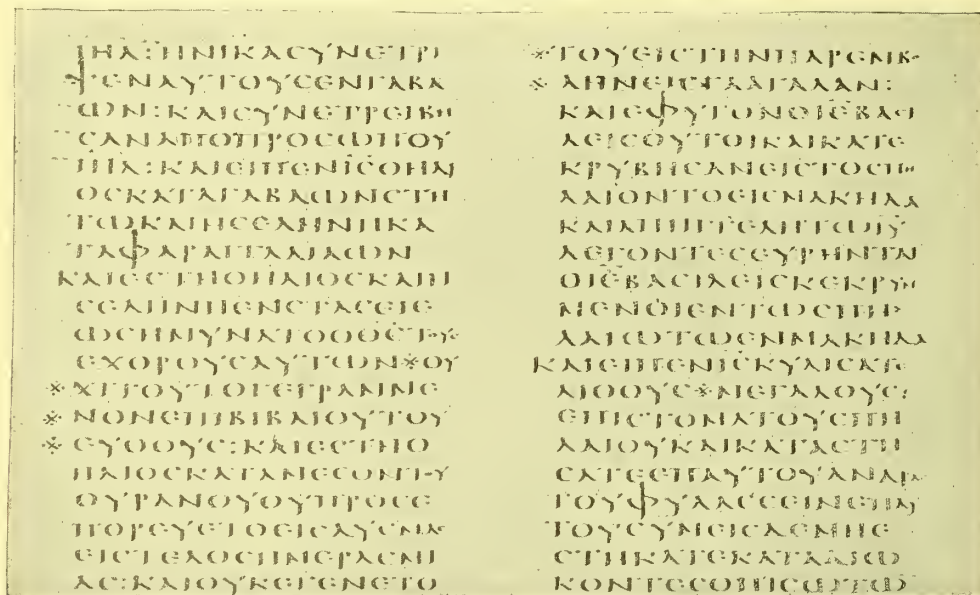 ΙΗΛ:ΗΝΙΚΑCΥΝΕΤΡΙ
ΨΕΝΑΥΤΟΥCΕΝΓΑΒΑ
ΩΝ:ΚΑΙCΥΝΕΤΡΕΙΒΗ
CΑΝΑΠΟΠΡΟCΩΠΟΥ
ΙΗΛ:ΚΑΙΕΙΠΕΝΙ̅C̅ΟΗΛΙ
ΟCΚΑΤΑΓΑΒΑΩΝCΤΗ
ΤΩΚΑΙΗCΕΛΗΝΗΚΑ
ΤΑΦΑΡΑΓΓΑΑΙΛΩΝ
ΚΑΙΕCΤΗΟΗΛΙΟCΚΑΙΗ
CΕΛΗΝΗΕΝCΤΑCΕΙΕ
ΩCΗΜΥΝΑΤΟΟΘ̅C̅ΤΟΥ
ΕΧΘΡΟΥCΑΥΤΩΝ※ΟΥ
※ΧΙΤΟΥΤΟΓΕΓΡΑΜΜΕ
※ΝΟΝΕΠΙΒΙΒΛΙΟΥΤΟΥ
※ΕΥΘΟΥC:ΚΑΙΕCΤΗΟ
ΗΛΙΟCΚΑΤΑΜΕCΟΝΤΟΥ
ΟΥΡΑΝΟΥΟΥΠΡΟCΕ
ΠΟΡΕΥΕΤΟΕΙCΔΥCΜΑC
ΕΙCΤΕΛΟCΗΜΕΡΑCΜΙ
ΑC:ΚΑΙΟΥΚΕΓΕΝΕΤΟ
※ΤΟΥΕΙCΤΗΝΠΑΡΕΜΒΟ
※ΛΗΝΕΙCΓΑΛΓΑΛΑΝ:
ΚΑΙΕΦΥΓΟΝΟΙΕ̅ΒΑCΙ
ΛΕΙCΟΥΤΟΙΚΑΙΚΑΤΕ
ΚΡΥΒΗCΑΝΕΙCΤΟCΠΗ
ΛΑΙΟΝΤΟΕΙCΜΑΚΗΔΑ
ΚΑΙΑΠΗΓΓΕΛΗΤΩΙΥ̅
ΛΕΓΟΝΤΕCΕΥΡΗΝΤΑΙ
ΟΙΕ̅ΒΑCΙΛΕΙCΚΕΚΡΥΜ
ΜΕΝΟΙΕΝΤΩCΠΗ
ΛΑΙΩΤΩΕΝΜΑΚΗΔΑ
ΚΑΙΕΙΠΕΝΙ̅C̅ΚΥΛΙCΑΤΕ
ΛΙΘΟΥC※ΜΕΓΑΛΟΥC:
ΕΠΙCΤΟΜΑΤΟΥCΠΗ
ΛΑΙΟΥΚΑΙΚΑΤΑCΤΗ
CΑΤΕΕΠΑΥΤΟΥΑΝΔΡΑC
ΤΟΥΦΥΛΑCCΕΙΝΕΠΑΥ
ΤΟΥCΥΜΕΙCΔΕΜΗΕ
CΤΗΚΑΤΕΚΑΤΑΔΙΩ
ΚΟΝΤΕCΟΠΙCΩΤΩ